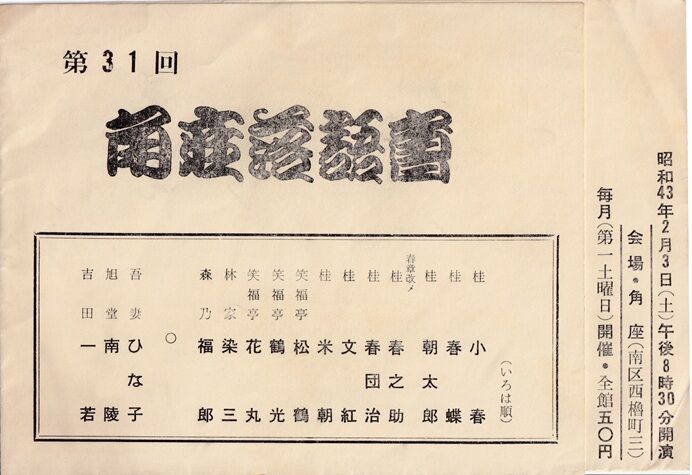 第31回
角座落語会
(いろは順)
桂 小春
桂 春蝶
春章改メ
桂 朝太郎
桂 春之助
桂 春団治
桂 文紅
桂 米朝
笑福亭 松鶴
笑福亭 鶴光
笑福亭 花丸
林家 染三
森乃 福郎
○
吾妻 ひな子
旭堂 南陵
吉田 一若
昭和43年2月3日(土)午後8時30分開演
会場・角座(南区西櫓町三)
毎月(第一土曜日)開催・全館五〇円